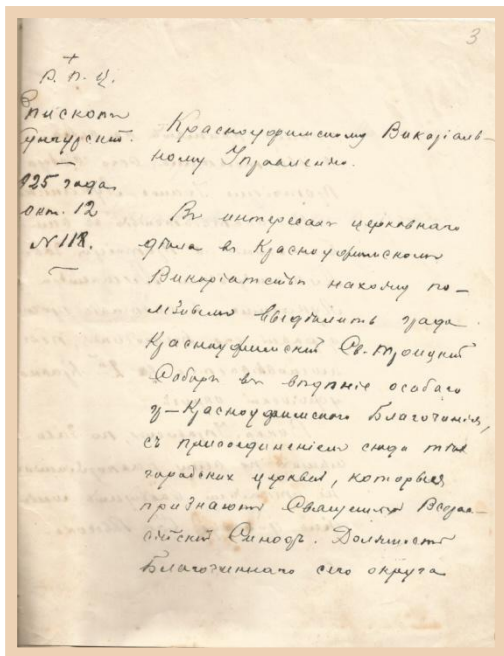 3
Р. П. Ц.
Епископъ
Кунгурский.
1925 года
окт. 12
№ 118.
Красноуфимскому Викаріаль-
ному Управленію.
Въ интересахъ церковнаго
дѣла въ Красноуфимскомъ
Викаріатствѣ нахожу по-
лезнымъ выдѣлить града
Красноуфимскій Св.-Троицкій
Соборъ въ вѣдѣніе особаго
г-Красноуфимскаго Благочинія,
съ присоединеніемъ сюда тѣхъ
городскихъ церквей, которыя
признаютъ Священный Всерос-
сійскій Синодъ. Должность
Благочиннаго сего округа